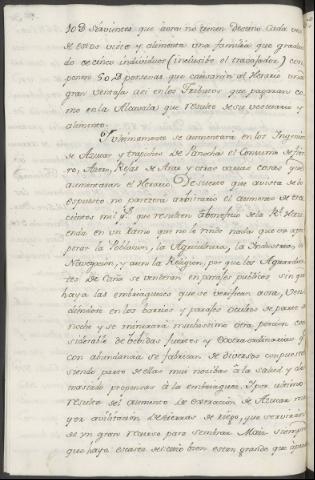 10 D sirvientes que aora no tienen Destino: cada uno
de estos viste y alimenta una familia que gradua
da de cinco individuos (inclusibe el travajador) com
ponen 50 D personas, que causarán al Herario una
gran ventaja asi en los Tributos que pagaran co
mo en la Alcavala que resulte de su vestuario y
alimento.
Ultimamente se aumentará en los Ingenios
de Azucar y trapiches de Panocha el Consumo de fier
ro, Azero, Rejas de Arar y otras varias cosas que
aumentaran el Herario. De suerte que a vista de lo
expuesto no parezerá arbitrario el aumento de tres
cientos mil p.s que resulten a beneficio de la R.l Hazi
enda en un Ramo que no le rinde nada: que en nada
la Poblacion, la Agricultura, la Industria, la
Navegacion, y aun la Religion, por que los Aguardien
tes de Caña se venderan en parajes publicos sin que
haya las embriagueces que se verifican aora, ven
diendose en los barrios y parajes ocultos de parte de
noche y se minorará muchissimo otra porcion con
siderable de bebidas fuertes y extraordinarias q.e
con abundancia se fabrican de diversos compuestos
siendo parte de ellas mui nocibas á la salud y de
masiado propensas á la embriaguez. Y por ultimo
resulta del aumento de extraccion de Azucar ma
yor avilitacion de tierras de riego, que serviran
de un gran recurso para sembrar Maiz siempre
que haya escasez de este bien estan grande que